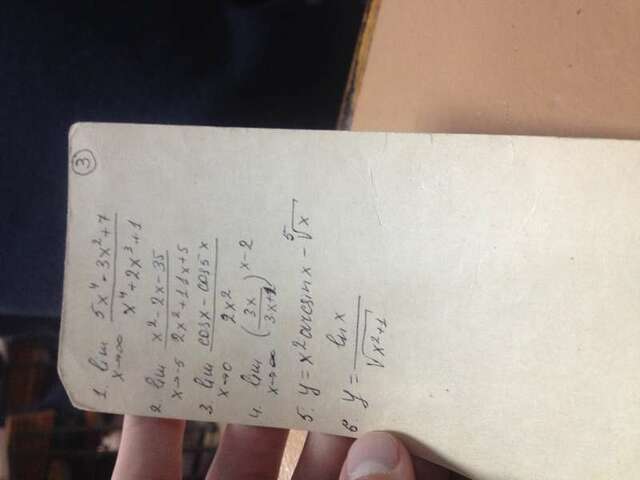 ③
1. lim x→∞ (5x⁴ - 3x² + 7) / (x⁴ + 2x³ + 1)
2. lim x→-5 (x² - 2x - 35) / (2x² + 11x + 5)
3. lim x→0 (cosx - cos5x) / (2x²)
4. lim x→∞ (3x / (3x+1))^(x-2)
5. y = x² arcsinx - ⁵√x
6. y = lnx / √(x²+1)